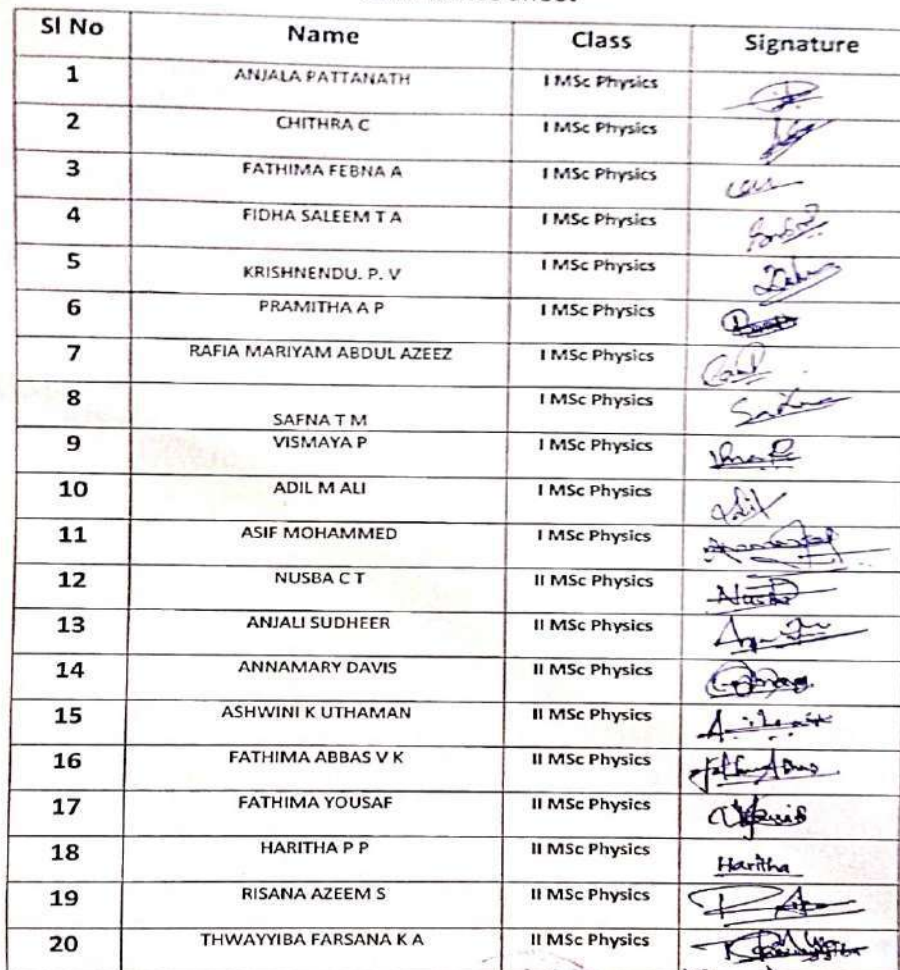 Sl No Name Class Signature
1 ANJALA PATTANATH I MSc Physics
2 CHITHRA C I MSc Physics
3 FATHIMA FEBNA A I MSc Physics
4 FIDHA SALEEM T A I MSc Physics
5 KRISHNENDU. P. V I MSc Physics
6 PRAMITHA A P I MSc Physics
7 RAFIA MARIYAM ABDUL AZEEZ I MSc Physics
8 SAFNA T M I MSc Physics
9 VISMAYA P I MSc Physics
10 ADIL M ALI I MSc Physics
11 ASIF MOHAMMED I MSc Physics
12 NUSBA C T II MSc Physics
13 ANJALI SUDHEER II MSc Physics
14 ANNAMARY DAVIS II MSc Physics
15 ASHWINI K UTHAMAN II MSc Physics
16 FATHIMA ABBAS V K II MSc Physics
17 FATHIMA YOUSAF II MSc Physics
18 HARITHA P P II MSc Physics Haritha
19 RISANA AZEEM S II MSc Physics
20 THWAYYIBA FARSANA K A II MSc Physics